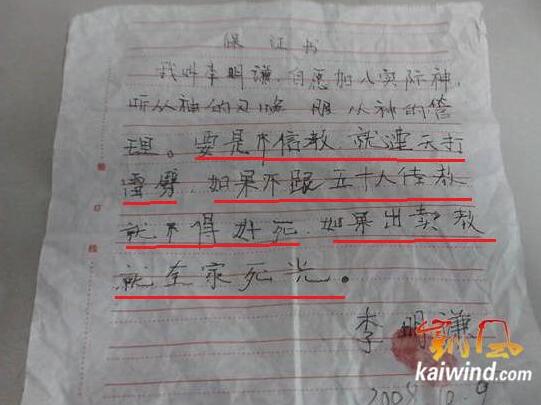 保证书
我叫李明谦,自愿加入实际神,
听从神的 服从神的管
理。要是不信教,就遭天打
雷劈,如果不跟五十人传教
就不得好死,如果出卖教
就全家死光。
李明谦
kaiwind.com